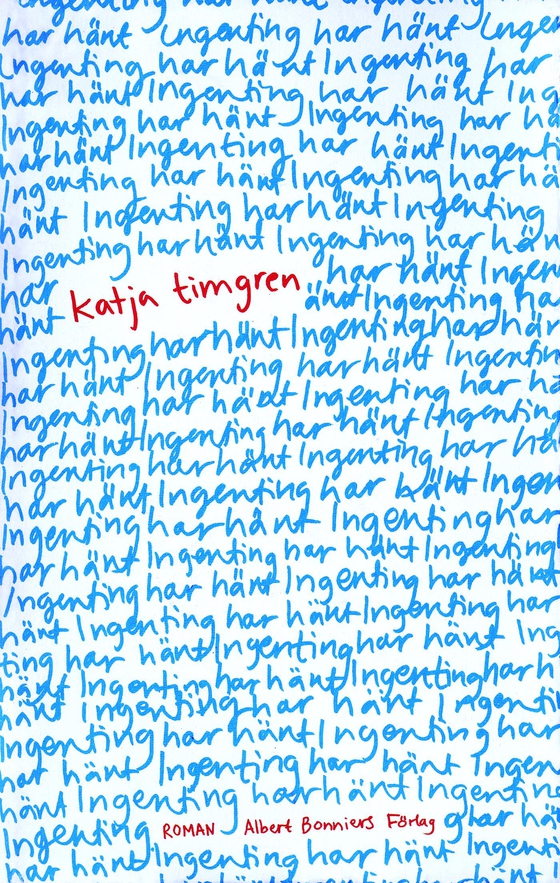 Ingenting har hänt Ingenting
har hänt Ingenting har hänt Inge
Ingenting har hänt Ingenting har
har hänt Ingenting har hänt Ing
Ingenting har hänt Ingenting har hä
har hänt Ingenting har hänt Ingenti
Ingenting har hänt Ingenting har hä
hänt Ingenting har hänt Ingenting
Ingenting har hänt Ingenting har hän
har har hänt Ingen
katja timgren
hänt änt Ingenting ha
Ingenting har hänt Ingenting har hän
har hänt Ingenting har hänt Ingentin
Ingenting har hänt Ingenting har h
har hänt Ingenting har hänt Ingenting
Ingenting har hänt Ingenting har hä
har hänt Ingenting har hänt Ingen
Ingenting har hänt Ingenting har
har hänt Ingenting har hänt Ingenting
Ingenting har hänt Ingenting har hänt
hänt Ingenting har hänt Ingenting har
ting har hänt Ingenting har hänt Ing
hänt Ingenting har hänt Ingenting har h
hänt Ingenting har hänt Ingenti
Ingenting har hänt Ingenting har
har hänt Ingenting har hänt Ingen
hänt Ingenting har hänt Ingentin
Ingenting ROMAN Albert Bonniers Förlag g har hä
har hänt Ingenting har hänt Ingenti